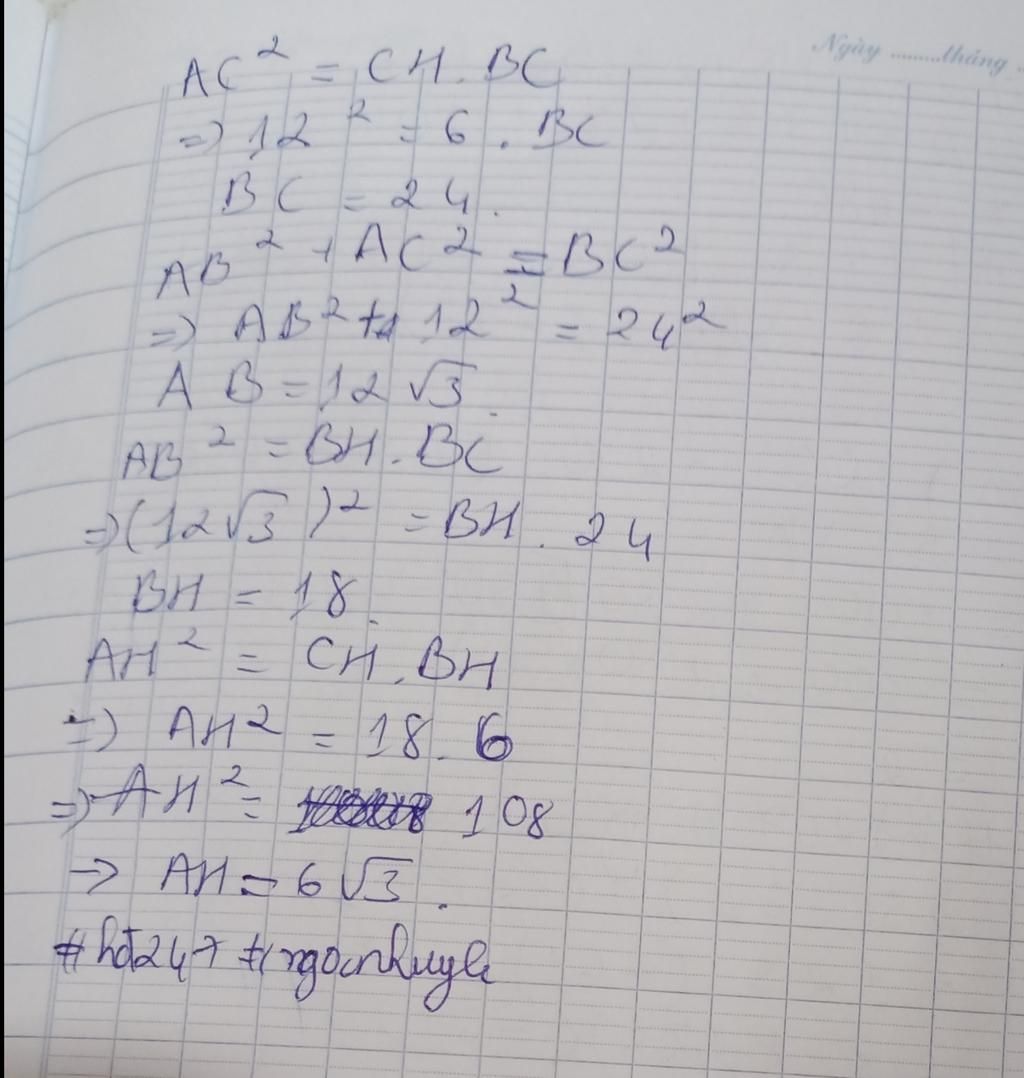 Ngày ........tháng ..
AC² = CH . BC
=> 12² = 6 . BC
BC = 24.
AB² + AC² = BC²
=> AB² + 12² = 24²
AB = 12√3.
AB² = BH . BC
=> (12√3)² = BH . 24
BH = 18.
AH² = CH . BH
=> AH² = 18 . 6
=> AH² = 108
-> AH = 6√3.